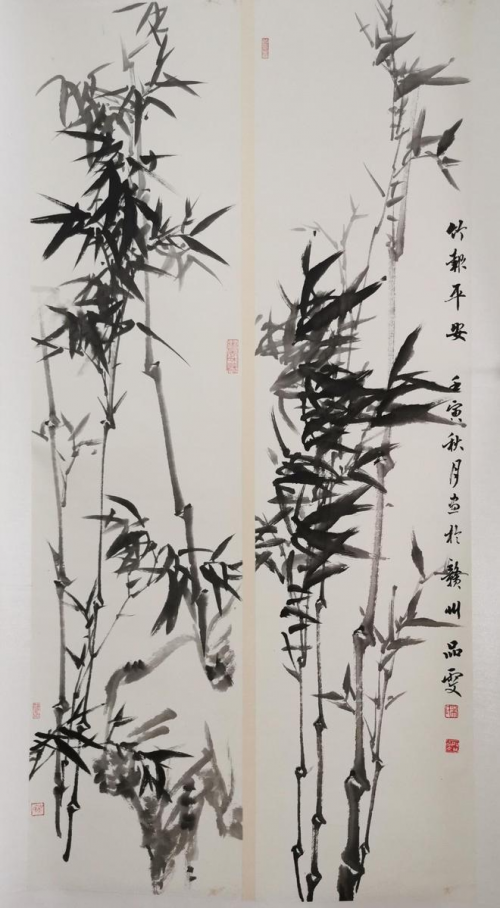 竹報平安 壬寅秋月画於贛州品雯